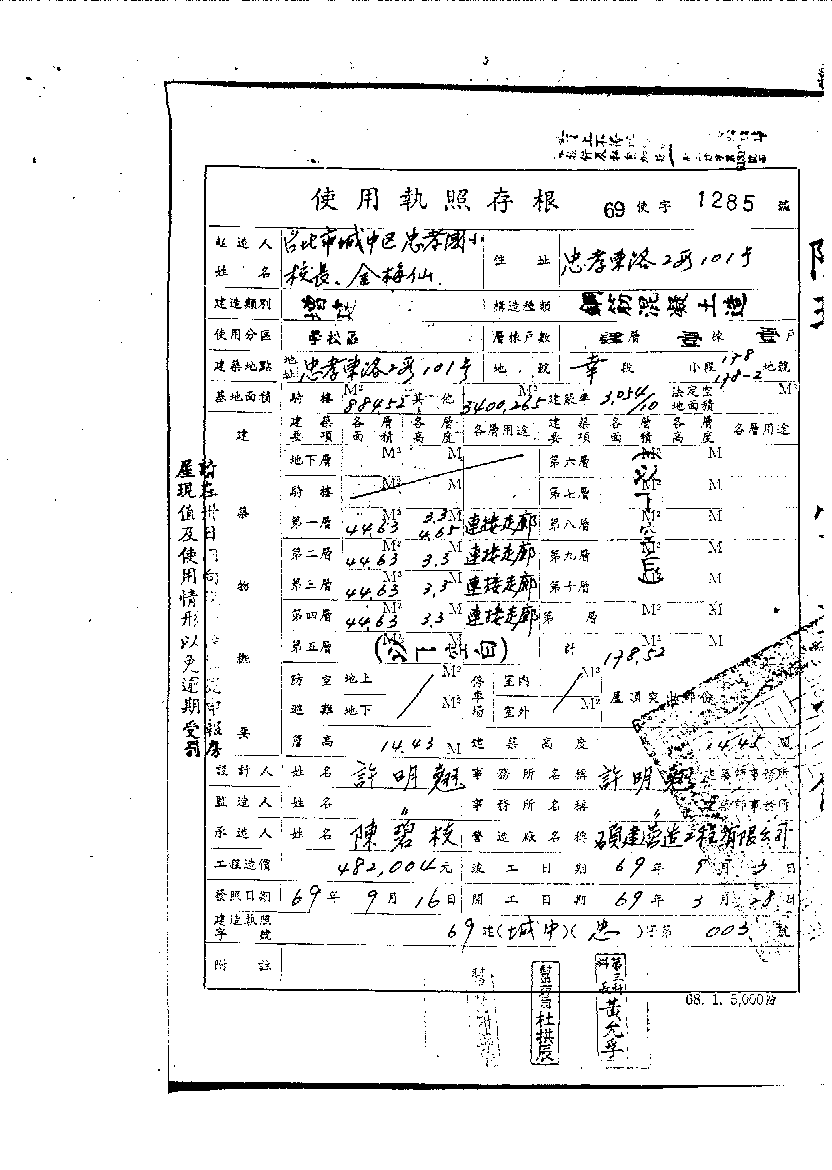 使用執照存根 69使字 1285 號
起造人姓名 台北市城中區忠孝國小校長、金梅仙 住址 忠孝東路2段101号
建造類別 增建 構造種類 鋼筋混凝土造
使用分區 學校區 層棟戶數 壹層 壹棟 壹戶
建築地點 地址 忠孝東路2段101号 地號 幸段 小段 178 178-2 地號
基地面積 騎樓 88452 M² 其他 3400.265 M² 建蔽率 3.054/10 法定空地面積 M²
建築要項 各層面積 各層高度 各層用途 建築要項 各層面積 各層高度 各層用途
建築物概要
地下層 M² M 第六層 M² M
騎樓 M² M 第七層 M² M
第一層 44.63 M² 3.3 4.65 M 連接走廊 第八層 M² M
第二層 44.63 M² 3.3 M 連接走廊 第九層 M² M
第三層 44.63 M² 3.3 M 連接走廊 第十層 M² M
第四層 44.63 M² 3.3 M 連接走廊 第 層 M² M
第五層 M² M (以下空白) 計 178.52 M² M
(以下空白)
防空避難 地上 M² 停車場 室內 M² 屋頂突出部份
地下 M² 室外 M²
簷高 14.43 M 建築高度 14.45
設計人 姓名 許明 事務所名稱 許明 建築師事務所
監造人 姓名 〃 事務所名稱 〃 建築師事務所
承造人 姓名 陳碧枝 營造廠名稱 碩建營造工程有限公司
工程造價 482,004元 竣工日期 69年9月3日
發照日期 69年9月16日 開工日期 69年3月28日
建造執照字號 69建(城中)(忠)字第 003 號
附註
68.1.5,000份
屋現值及使用情形以免逾期受罰
杜拱辰
第三科科長黃允孚